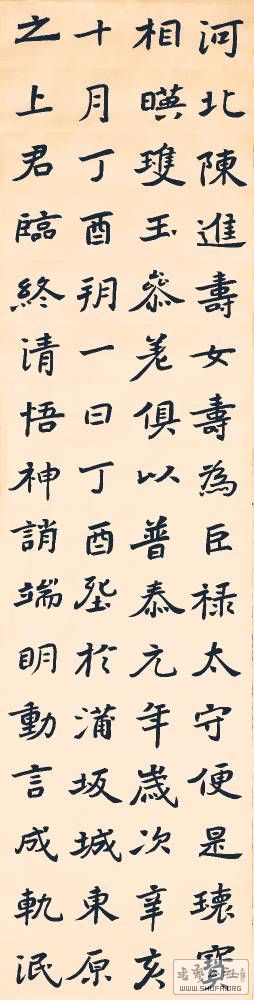 河北陳進壽女壽為巨祿太守便是瓌寶
相暎瓊玉參差俱以普泰元年歲次辛亥
十月丁酉朔一日丁酉塟於蒲坂城東原
之上君臨終清悟神誚端明動言成軌泯